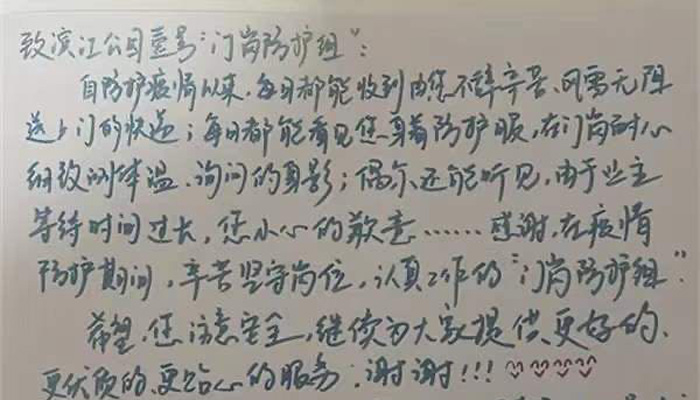 致滨江公园壹号“门岗防护组”:
自防护疫情以来,每日都能收到由您不辞辛苦、风雨无阻
送上门的快递;每日都能看见您身着防护服,在门岗耐心
细致测体温、询问的身影;偶尔还能听见,由于业主
等待时间过长,您小心的歉意……感谢,在疫情
防护期间,辛苦坚守岗位,认真工作的“门岗防护组”.
希望,您注意安全,继续为大家提供更好的、
更优质的、更贴心的服务.谢谢!!!